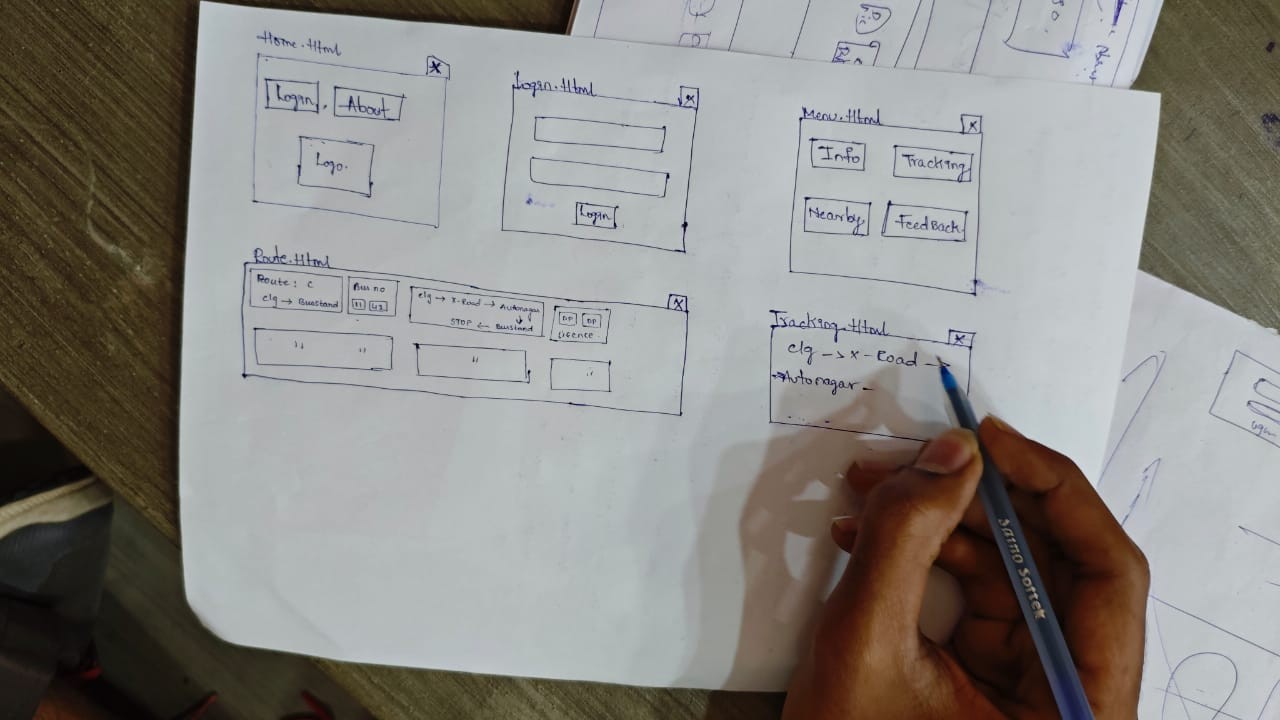 Home.Html
x
Login, About
Logo.
Login.Html
x
Login
Menu.Html
x
Info
Tracking
Nearby
FeedBack
Route.Html
x
Route: C
clg → Busstand
Bus no
clg → X-Road → Autonagar
STOP ← Busstand
DP DP
Licence
"
"
"
"
Tracking.Html
x
clg → X-Road →
→ Autonagar -
Saino Softek